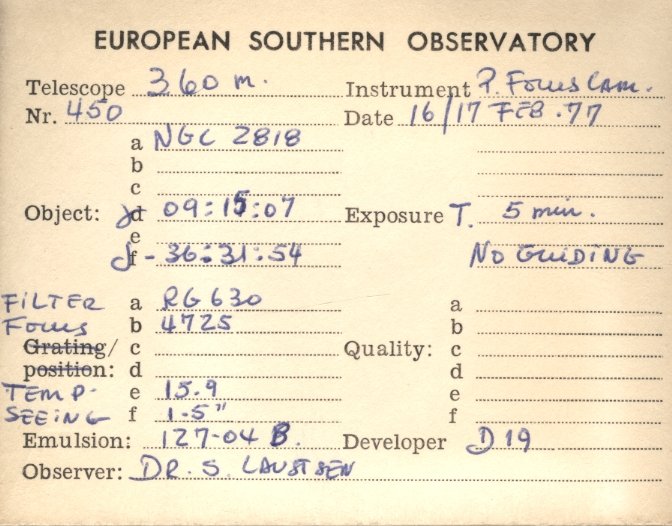 EUROPEAN SOUTHERN OBSERVATORY
Telescope 3.60 m. Instrument P. Focus Cam.
Nr. 450 Date 16/17 FEB. 77
a NGC 2818
b
c
Object: α d 09:15:07 Exposure T. 5 min.
e
δ f -36:31:54 NO GUIDING
FILTER a RG 630 a
Focus b 4725 b
Grating/ c Quality: c
position: d d
TEMP. e 15.9 e
SEEING f 1.5" f
Emulsion: 127-04 B. Developer D 19
Observer: DR. S. LAUSTSEN